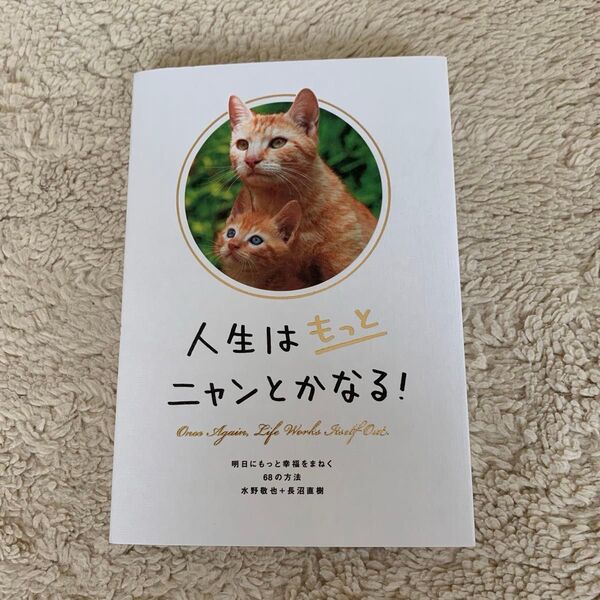 人生はもっと
ニャンとかなる！
Once Again, Life Works Itself Out.
明日にもっと幸福をまねく
68の方法
水野敬也+長沼直樹